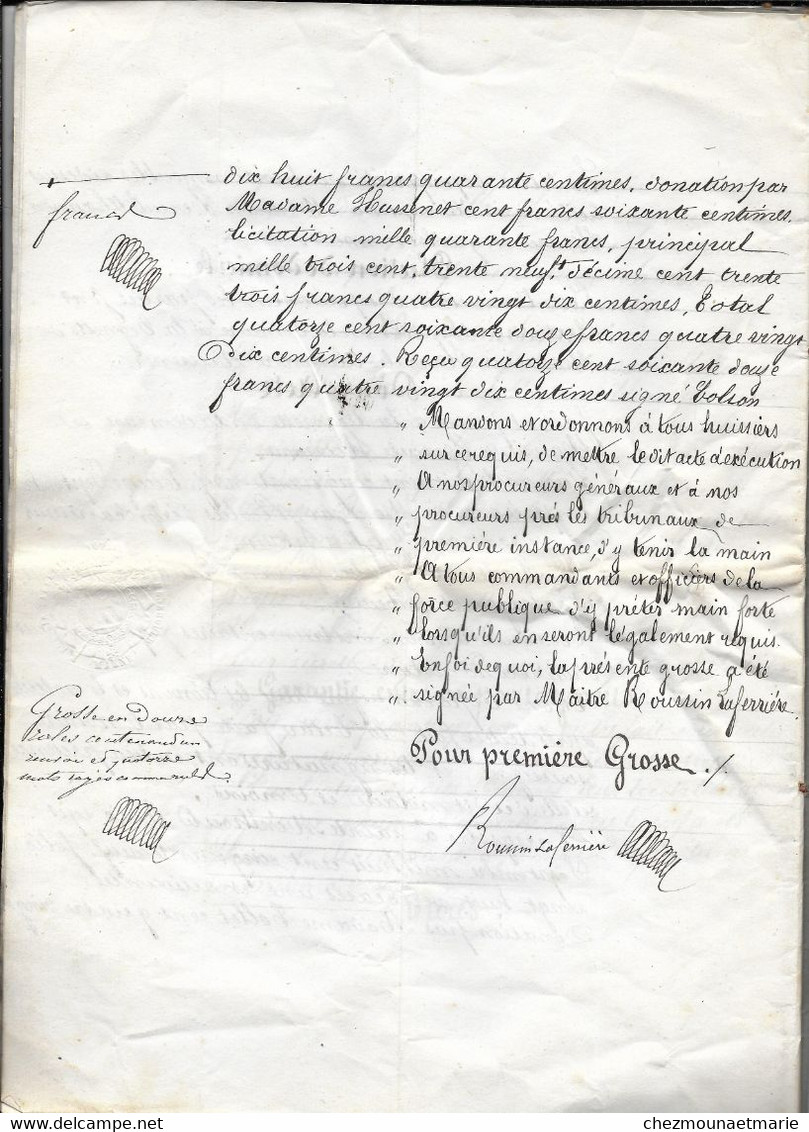 dix huit francs quarante centimes, donation par
francs
Madame Hussenet cent francs soixante centimes,
licitation mille quarante francs, principal
mille trois cent, trente neuf,t décime cent trente
trois francs quatre vingt dix centimes, Total
quatorze cent soixante douze francs quatre vingt
dix centimes. Reçu quatorze cent soixante douze
francs quatre vingt dix centimes signé Tolson
„ Mandons et ordonnons á tous huissiers
„ sur ce requis, de mettre ledit acte á exécution
„ A nos procureurs généraux et á nos
„ procureurs prés les tribunaux de
„ premiére instance, d'y tenir la main
„ A tous commandants et officiers de la
„ force publique d'y préter main forte
„ lorsqu'ils en seront légalement requis.
„ En foi de quoi, la présente grosse a été
„ signée par Maitre Roussin Laferriére.
Grosse en douze
roles contenant un
renvoi et quatorze
mots rayés comme nuls.
Pour premiére Grosse ./.
Roussin Laferriére
chezmounaetmarie